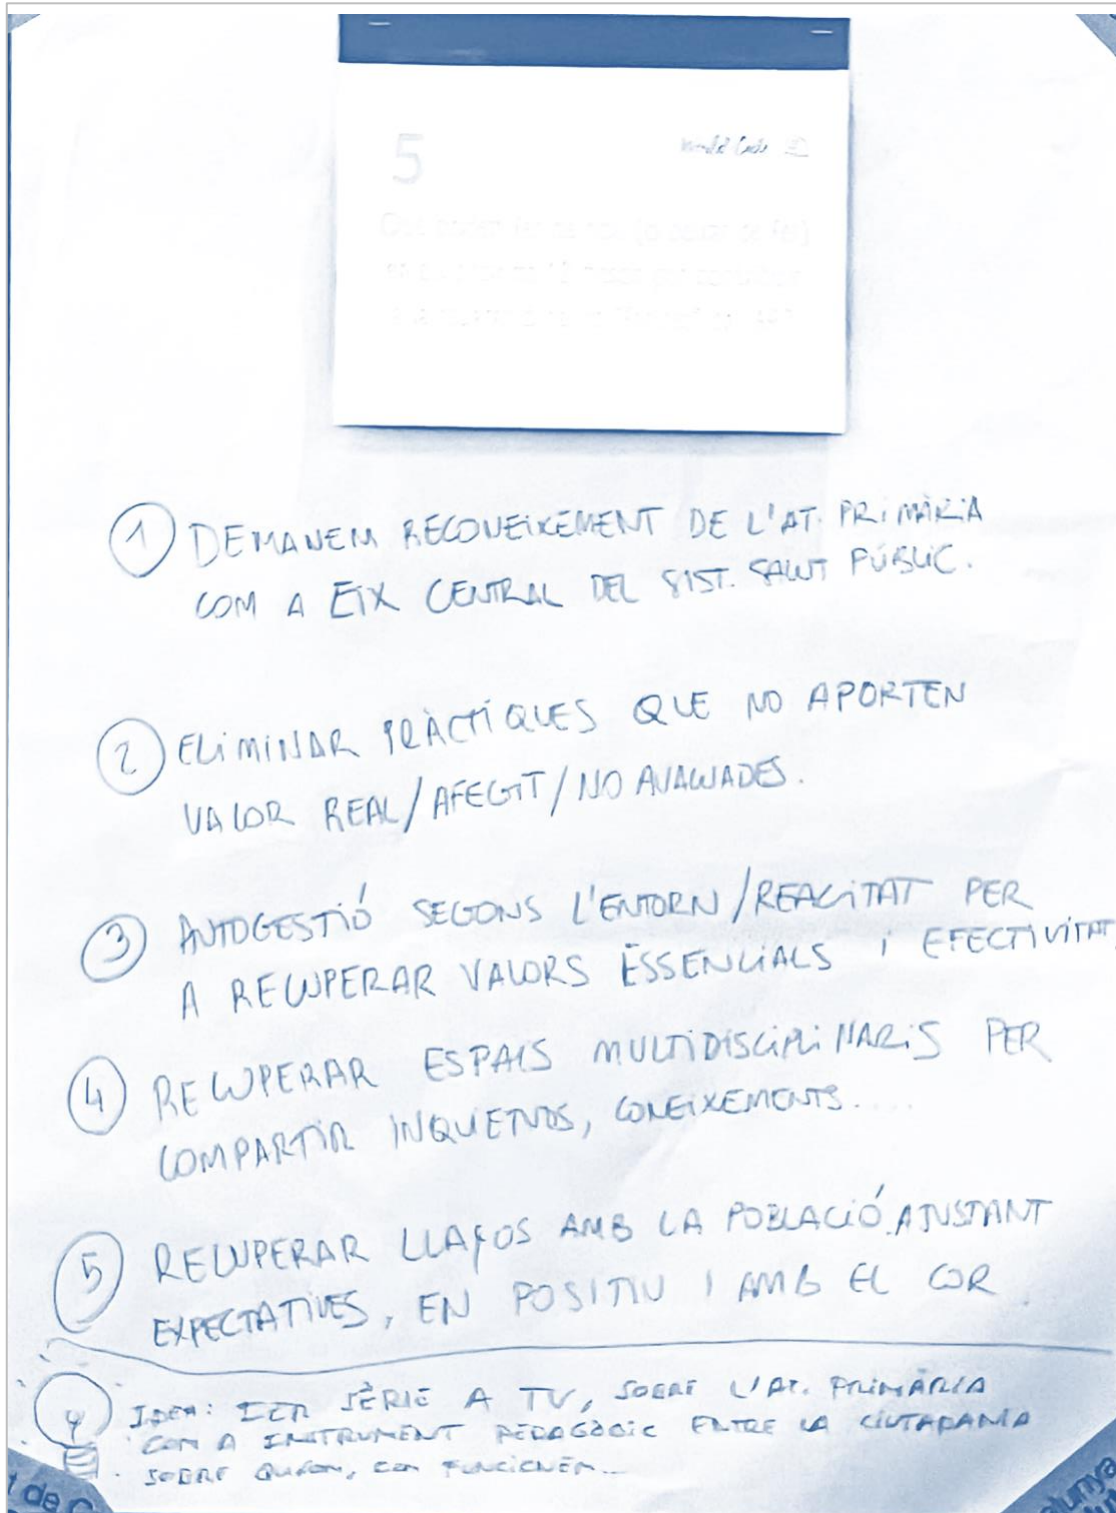 5
World Cafè
1 DEMANEM RECONEIXEMENT DE L'AT. PRIMÀRIA
COM A EIX CENTRAL DEL SIST. SALUT PÚBLIC.
2 ELIMINAR PRÀCTIQUES QUE NO APORTEN
VALOR REAL/AFEGIT/NO AVALUADES.
3 AUTOGESTIÓ SEGONS L'ENTORN/REALITAT PER
A RECUPERAR VALORS ESSENCIALS I EFECTIVITAT.
4 RECUPERAR ESPAIS MULTIDISCIPLINARIS PER
COMPARTIR INQUIETUDS, CONEIXEMENTS....
5 RECUPERAR LLAÇOS AMB LA POBLACIÓ, AJUSTANT
EXPECTATIVES, EN POSITIU I AMB EL COR.
IDEA: FER SÈRIE A TV, SOBRE L'AT. PRIMÀRIA
COM A INSTRUMENT PEDAGÒGIC ENTRE LA CIUTADANIA
SOBRE COM FUNCIONEM...
t de C
lunya